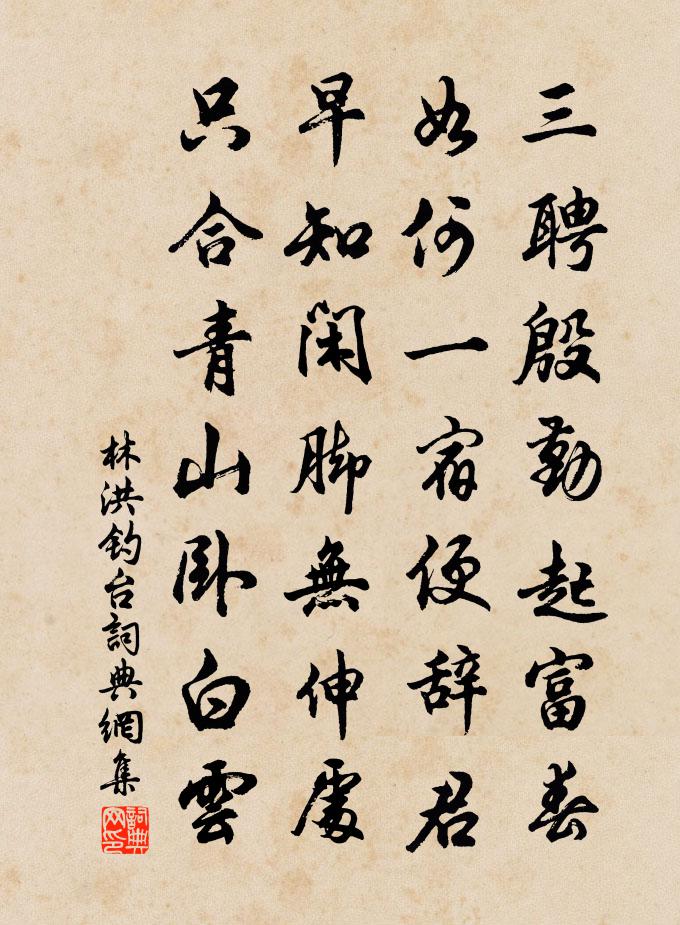 三聘殷勤起富春
如何一宿便辞君
早知閑脚無伸處
只合青山卧白雲
林洪钓台詞典網集
詞典网印